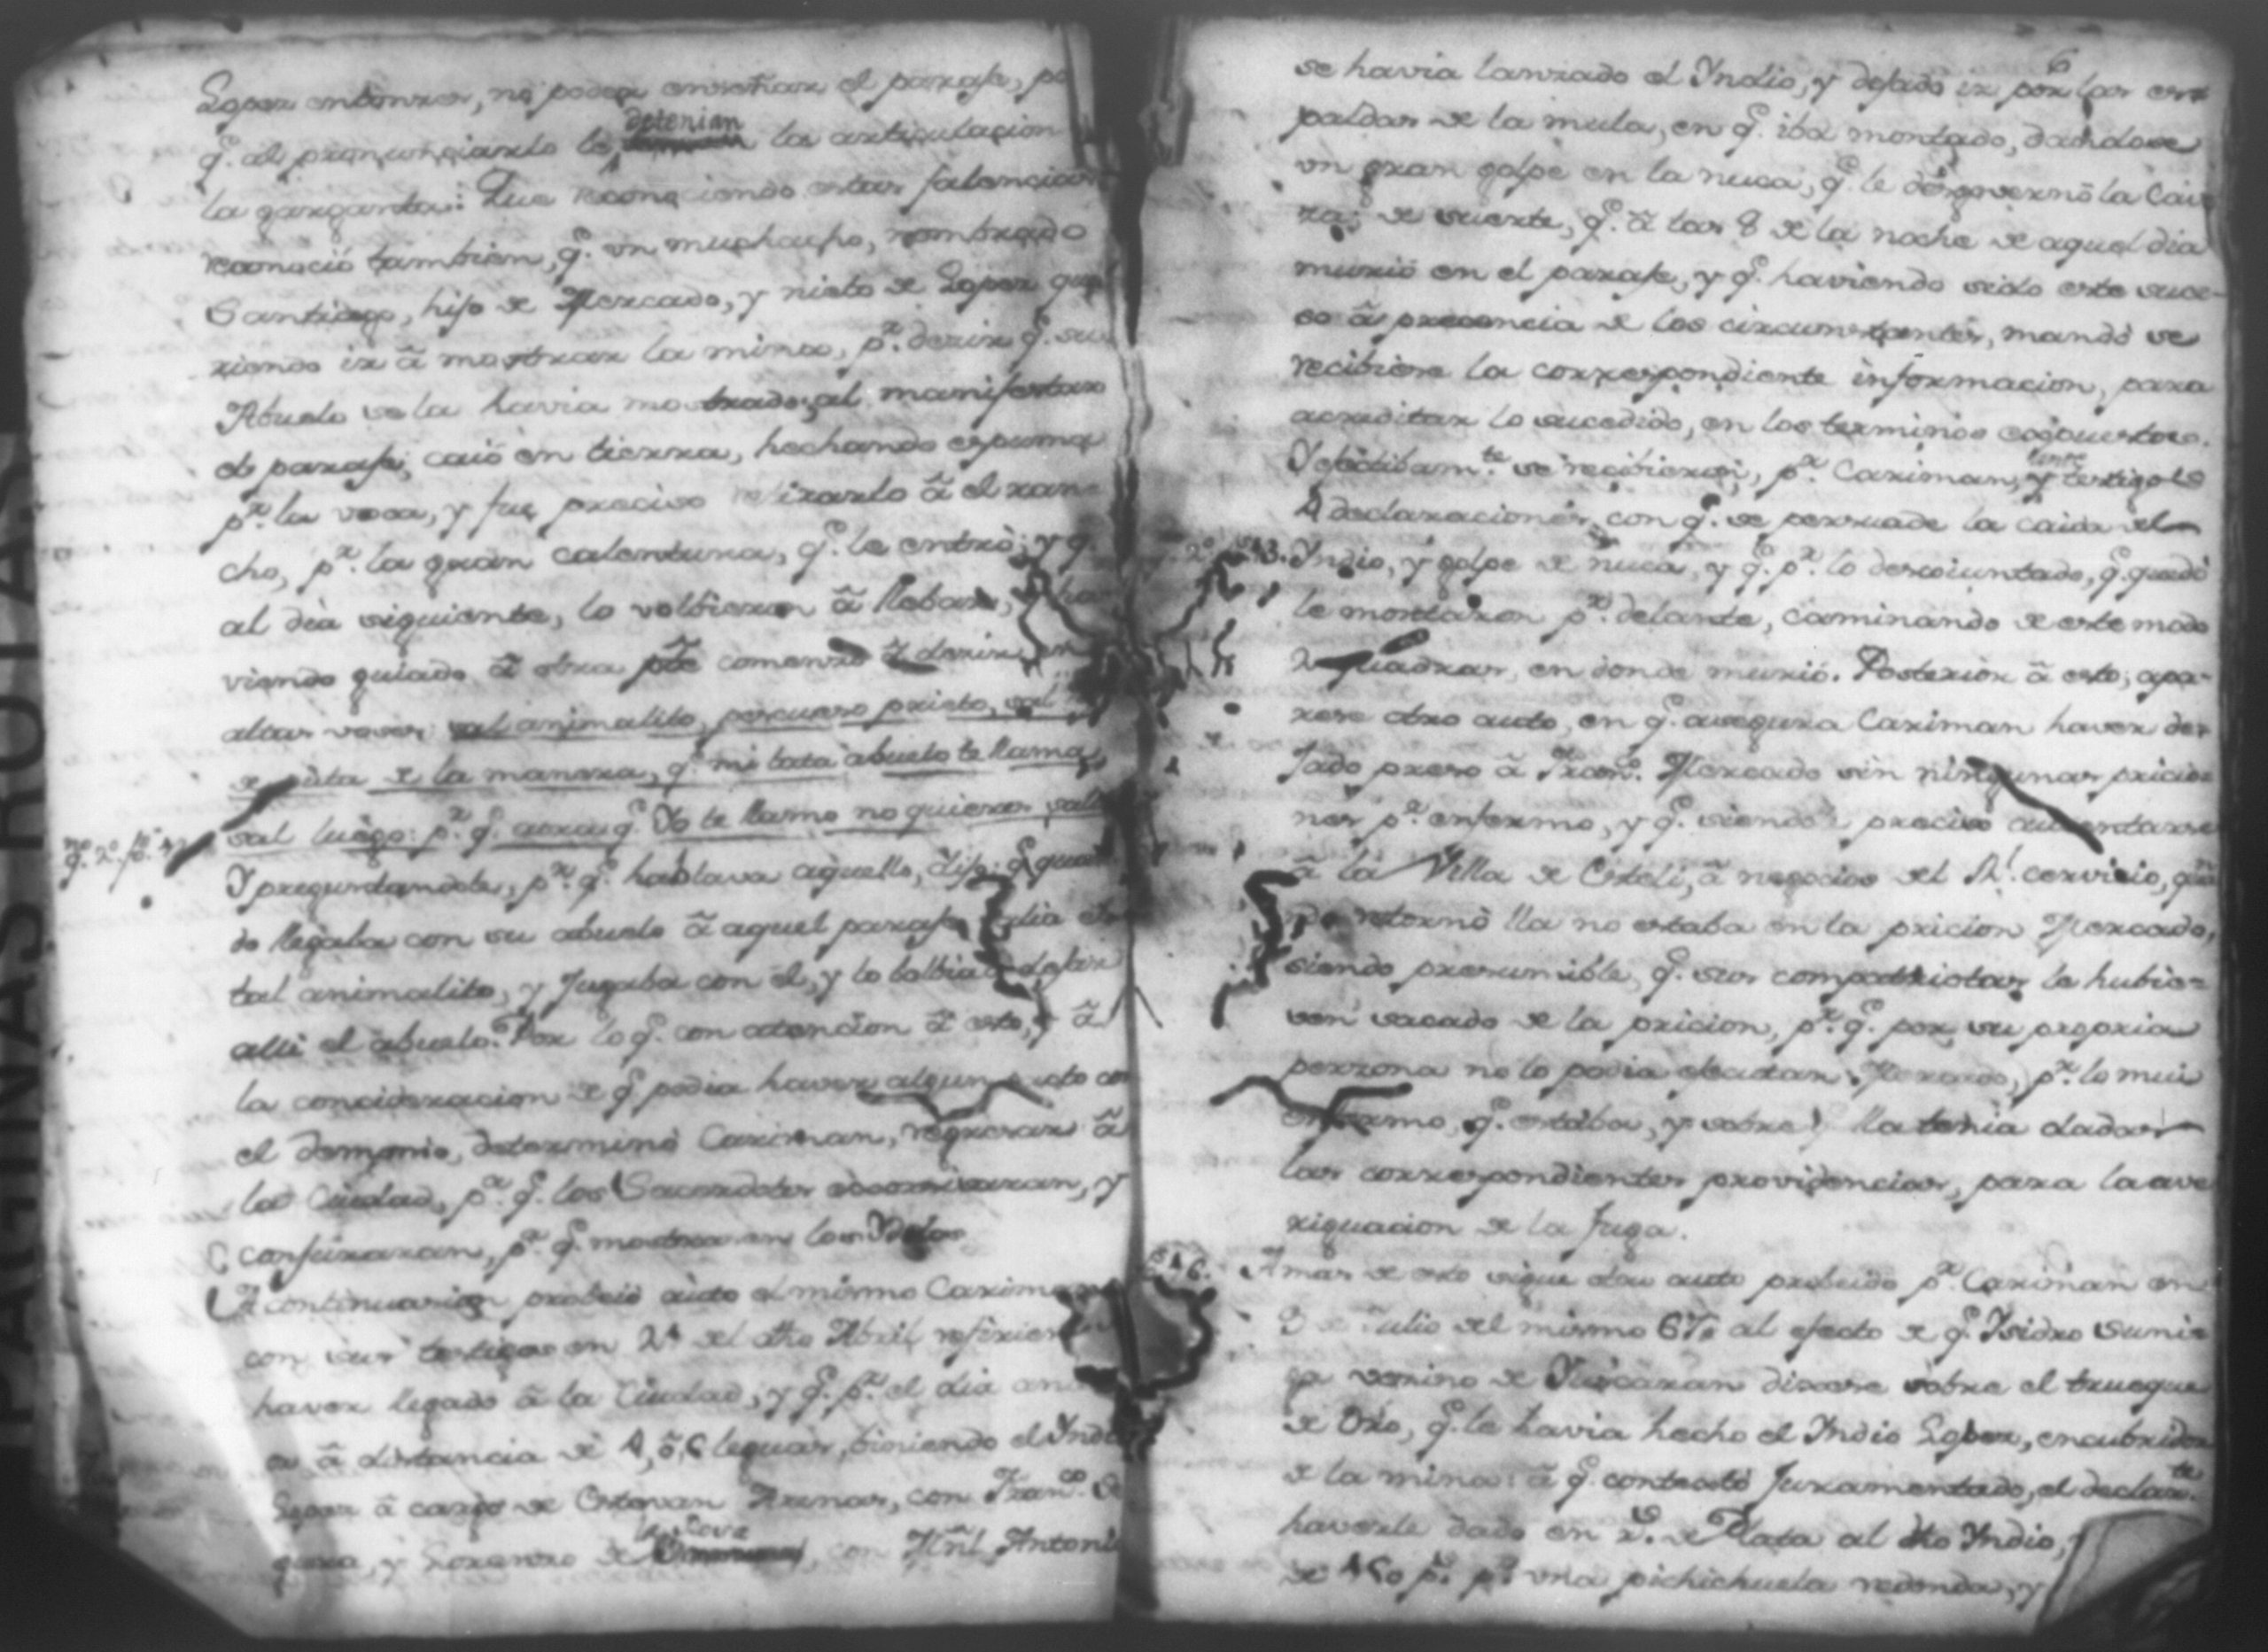 Lopez entonzes, no poder enseñar el paraje, po
q.e al pronunciarlo le detenian la articulacion
la garganta: Que reconociendo estas falencias
reconoció tambien, q.e un muchacho, nombrado
Santiago, hijo de Mercado, y nieto de Lopez que
riendo ir â mostrar la mina, p.r dezir q.e su
Abuelo se la havia mostrado, al manifestar
el paraje, caió en tierra, hechando espuma
p.r la voca, y fue preciso retirarlo â el ran-
cho, p.r la gran calentura, q.e le entró; y q.
al dia siguiente, lo volbieron â llebar, y ha
viendo guiado â otra p.te comenzó â dezir en
altas vozes: sal animalito, pescueso prieto, sal
de la manera, q.e mi tata abuelo te llama,
sal luego: p.r q.e aora q.e Yo te llamo no quieres salir
Y preguntandole, p.r q.e hablava aquello, dijo: q.e quan
do llegaba con su abuelo â aquel paraje salia el
tal animalito, y Jugaba con el, y lo bolbia â dejar
alli el abuelo. Por lo q.e con atencion â esto, y â
la concideracion de q.e podia haver algun pacto con
el Demonio, determinó Cariman, regresar â
la Ciudad, p.a q.e los Sacerdotes exorcisaran, y
conjuraran, p.a q.e mostrasen los Ydolos
A continuacion probeió auto el mismo Cariman
con sus testigos en 24 del dho Abril refirien
haver llegado â la Ciudad, y q.e p.r el dia an
a â distancia de 4, ô 6 leguas, biniendo el Yndi
Lopez â cargo de Estevan Arenas, con Fran.co
guera, y Lorenzo de la Cova, con Man.l Antonio
6
se havia lanzado el Yndio, y dejado ir por las es-
paldas de la mula, en q.e iba montado, dandose
un gran golpe en la nuca, q.e le desgovernó la Cave
za: de suerte, q.e â las 8 de la noche de aquel dia
murió en el paraje, y q.e haviendo sido este suce-
so â precencia de los circunstantes, mandó se
recibiese la correspondiente informacion, para
acreditar lo sucedido, en los terminos expuestos.
Y efectibam.te se recibieron, p.r Cariman, y testigos
4 declaraciones, con q.e se persuade la caida del
Yndio, y golpe de nuca, y q.e p.r lo descoiuntado, q.e quedó
le montaron p.r delante, caminando de este modo
2 quadras, en donde murió. Posterior â esto, apa-
rese otro auto, en q.e asegura Cariman haver de-
jado preso â Fran.co Mercado sin ningunas pricio-
nes p.r enfermo, y q.e siendo preciso ausentarse
â la Villa de Esteli, â negocios del R.l cervicio, quan
do retornó lla no estaba en la pricion Mercado,
siendo presumible, q.e sus compatriotas le hubie-
sen sacado de la pricion, p.r q.e por su propria
persona no lo podia efectuar Mercado, p.r lo mui
enfermo, q.e estaba, y sobre lla tenia dadas
las correspondientes providencias, para la ave
riguacion de la fuga.
A mas de esto sigue otro auto probeido p.r Cariman en
3 de Julio del mismo 67, al efecto de q.e Ysidro Suni-
ga vezino de Yuscaran dixese sobre el trueque
de Oro, q.e le havia hecho el Yndio Lopez, encubridor
de la mina: â q.e contestó Juramentado, el declar.te
haverle dado en de Plata al dho Yndio, y
de p.r una pichichuela redonda, y